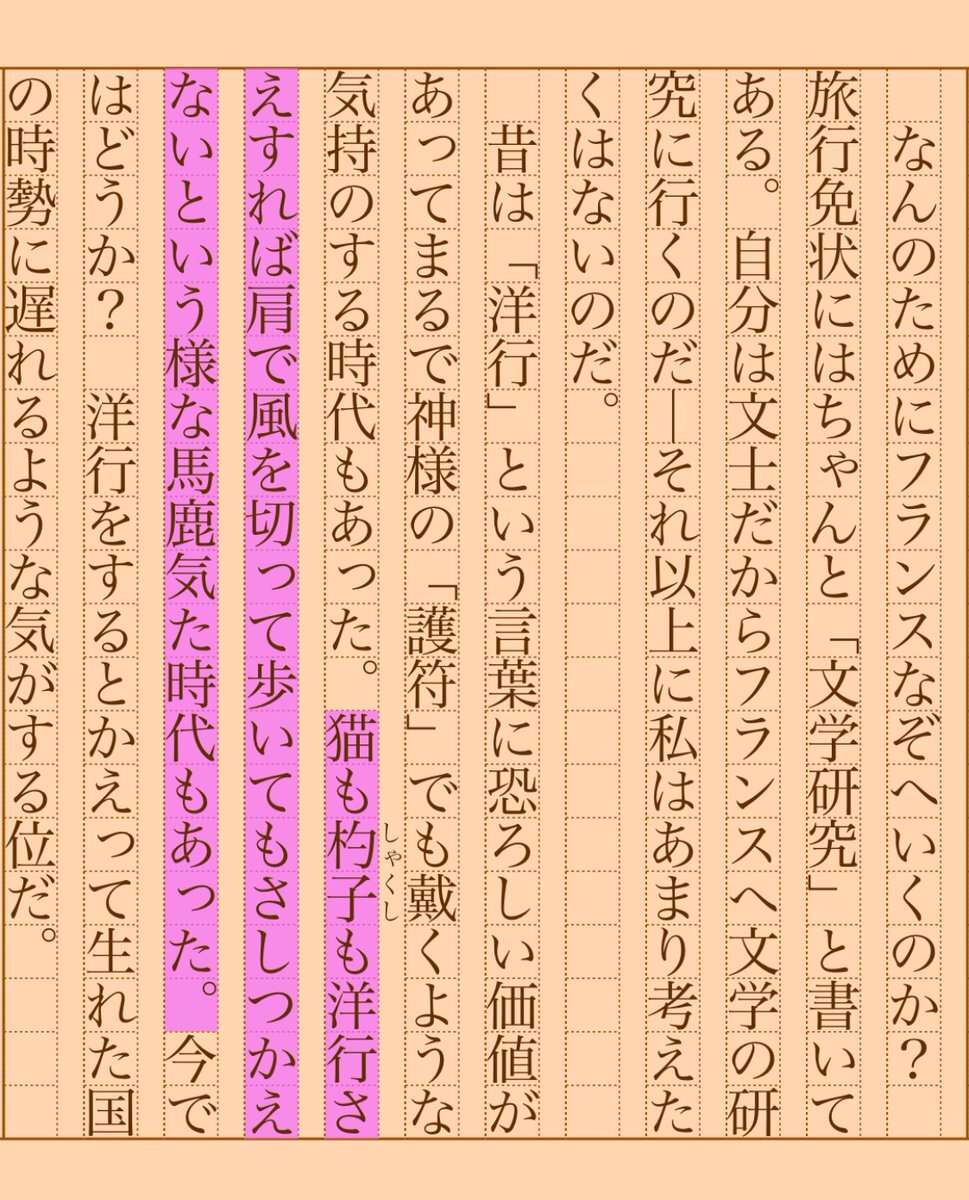 なんのためにフランスなぞへいくのか？
旅行免状にはちゃんと「文学研究」と書いて
ある。自分は文士だからフランスへ文学の研
究に行くのだ―それ以上に私はあまり考えた
くはないのだ。
昔は「洋行」という言葉に恐ろしい価値が
あってまるで神様の「護符」でも戴くような
気持のする時代もあった。猫も杓子も洋行さ
しゃくし
えすれば肩で風を切って歩いてもさしつかえ
ないという様な馬鹿気た時代もあった。今で
はどうか？　洋行をするとかえって生れた国
の時勢に遅れるような気がする位だ。